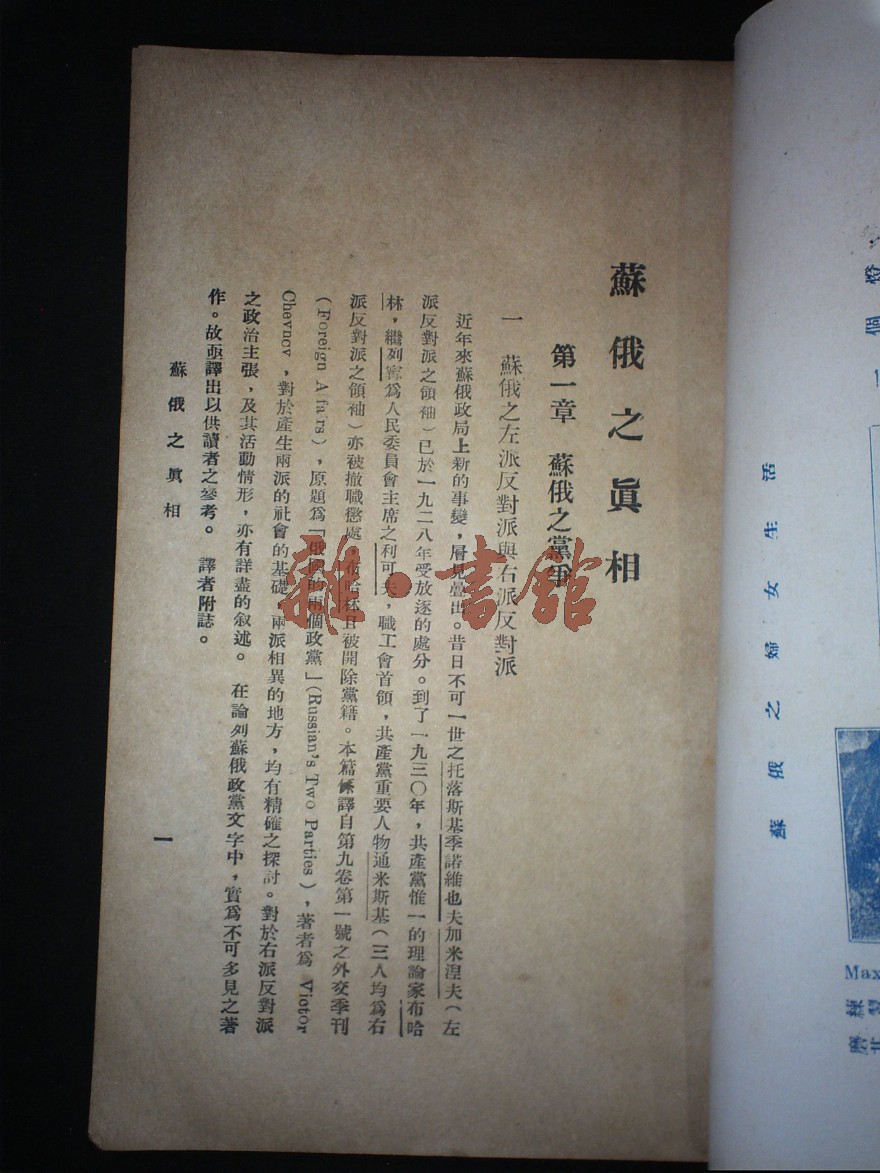 蘇俄之眞相
第一章　蘇俄之黨爭
一　蘇俄之左派反對派與右派反對派
近年來蘇俄政局上新的事變，層見疊出。昔日不可一世之托落斯基季諾維也夫加米湼夫（左
派反對派之領袖）已於一九二八年受放逐的處分。到了一九三〇年，共產黨惟一的理論家布哈
林，繼列甯爲人民委員會主席之利可夫，職工會首領，共產黨重要人物通米斯基（三人均爲右
派反對派之領袖）亦被撤職懲處，布哈林且被開除黨籍。本篇係譯自第九卷第一號之外交季刊
（Foreign Affairs），原題爲「俄國的兩個政黨」（Russian's Two Parties），著者爲 Victor
Chevncv，對於產生兩派的社會的基礎，兩派相異的地方，均有精確之探討。對於右派反對派
之政治主張，及其活動情形，亦有詳盡的叙述。在論列蘇俄政黨文字中，實爲不可多見之著
作。故亟譯出以供讀者之參考。　譯者附誌。
蘇俄之眞相
一
雜·書館
蘇俄之婦女生活
一個
Max